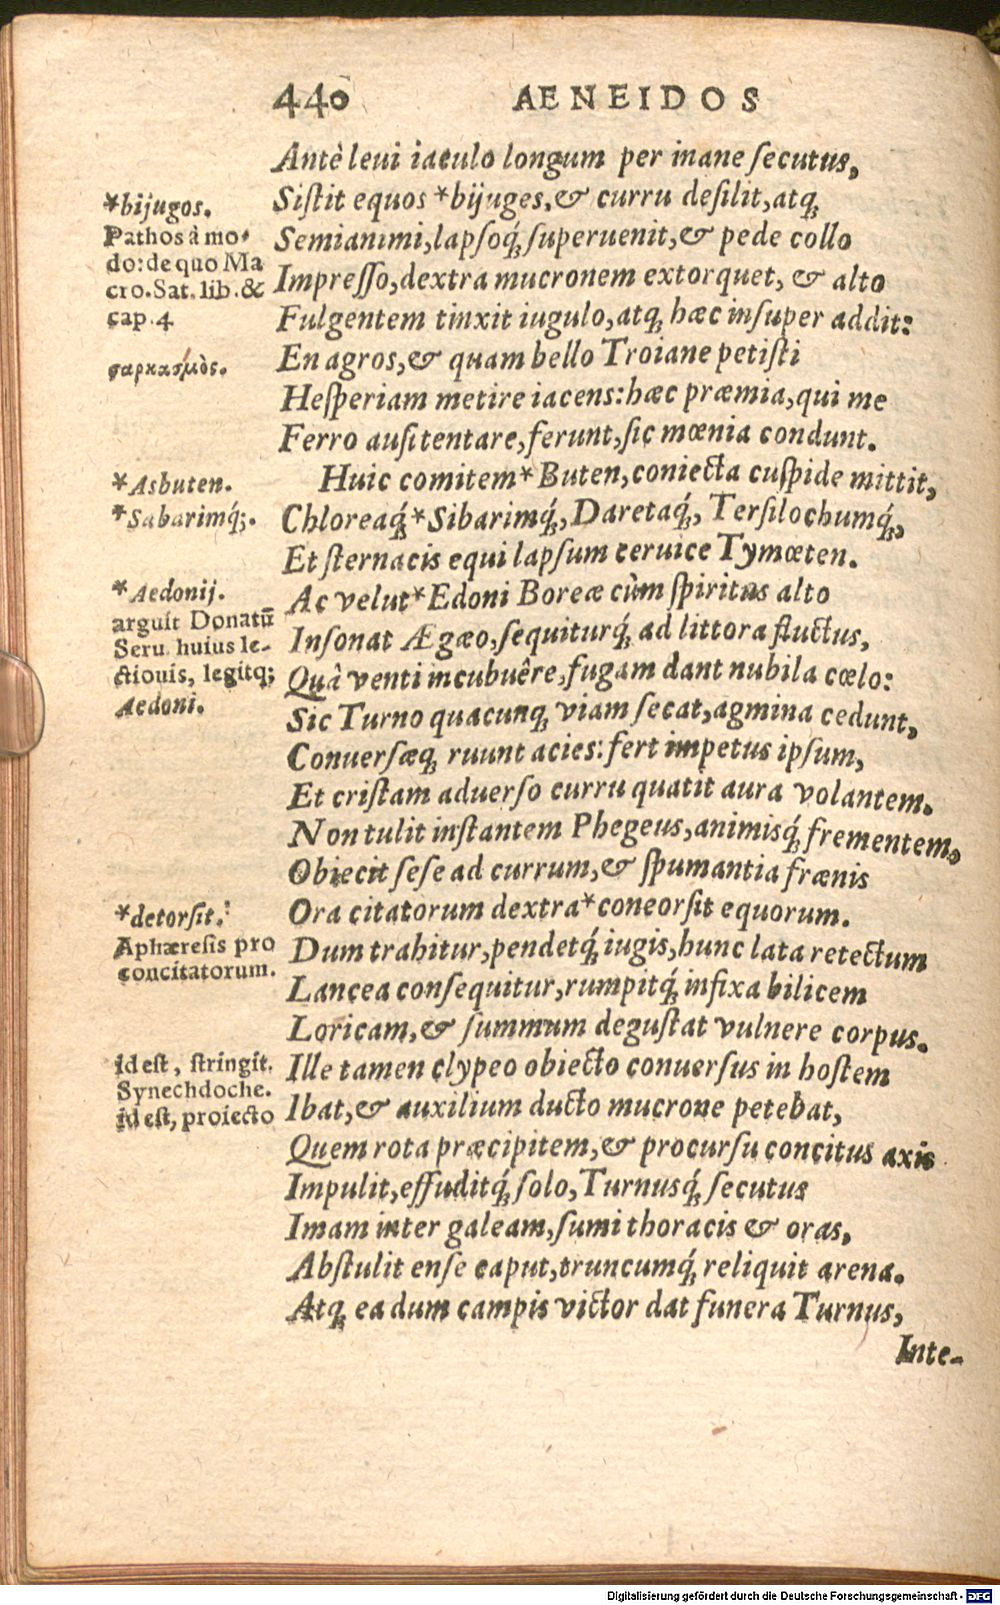 440 AENEIDOS
Antè leui iaculo longum per inane ſecutus,
Siſtit equos *bijuges, & curru deſilit, atq;
Semianimi, lapſoq́; ſuperuenit, & pede collo
Impreſſo, dextra mucronem extorquet, & alto
Fulgentem tinxit iugulo, atq; hæc inſuper addit:
En agros, & quam bello Troiane petiſti
Heſperiam metire iacens: hæc præmia, qui me
Ferro auſi tentare, ferunt, ſic mœnia condunt.
Huic comitem *Buten, coniecta cuſpide mittit,
Chloreaq́; *Sibarimq́;, Daretaq́;, Terſilochumq́;,
Et ſternacis equi lapſum ceruice Tymœten.
Ac velut *Edoni Boreæ cùm ſpiritus alto
Inſonat Ægæo, ſequiturq́; ad littora fluctus,
Quâ venti incubuêre, fugam dant nubila cœlo:
Sic Turno quacunq; viam ſecat, agmina cedunt,
Conuerſæq; ruunt acies: fert impetus ipſum,
Et criſtam aduerſo curru quatit aura volantem.
Non tulit inſtantem Phegeus, animisq́; frementem,
Obiecit ſeſe ad currum, & ſpumantia frænis
Ora citatorum dextra *coneorſit equorum.
Dum trahitur, pendetq́; iugis, hunc lata retectum
Lancea conſequitur, rumpitq́; infixa bilicem
Loricam, & ſummum deguſtat vulnere corpus.
Ille tamen clypeo obiecto conuerſus in hoſtem
Ibat, & auxilium ducto mucrone petebat,
Quem rota præcipitem, & procurſu concitus axis
Impulit, effuditq́; ſolo, Turnusq́; ſecutus
Imam inter galeam, ſumi thoracis & oras,
Abſtulit enſe caput, truncumq́; reliquit arena.
Atq; ea dum campis victor dat funera Turnus,
Inte-
*bijugos.
Pathos à mo-
do: de quo Ma
cro. Sat. lib. &
cap. 4
σαρκασμὸς.
*Asbuten.
*Sabarimq́;.
*Aedonij.
arguit Donatū
Seru. huius le-
ctionis, legitq;
Aedoni.
*detorſit.
Aphæreſis pro
concitatorum.
id eſt, ſtringit.
Synechdoche.
id eſt, proiecto
Digitalisierung gefördert durch die Deutsche Forschungsgemeinschaft - DFG